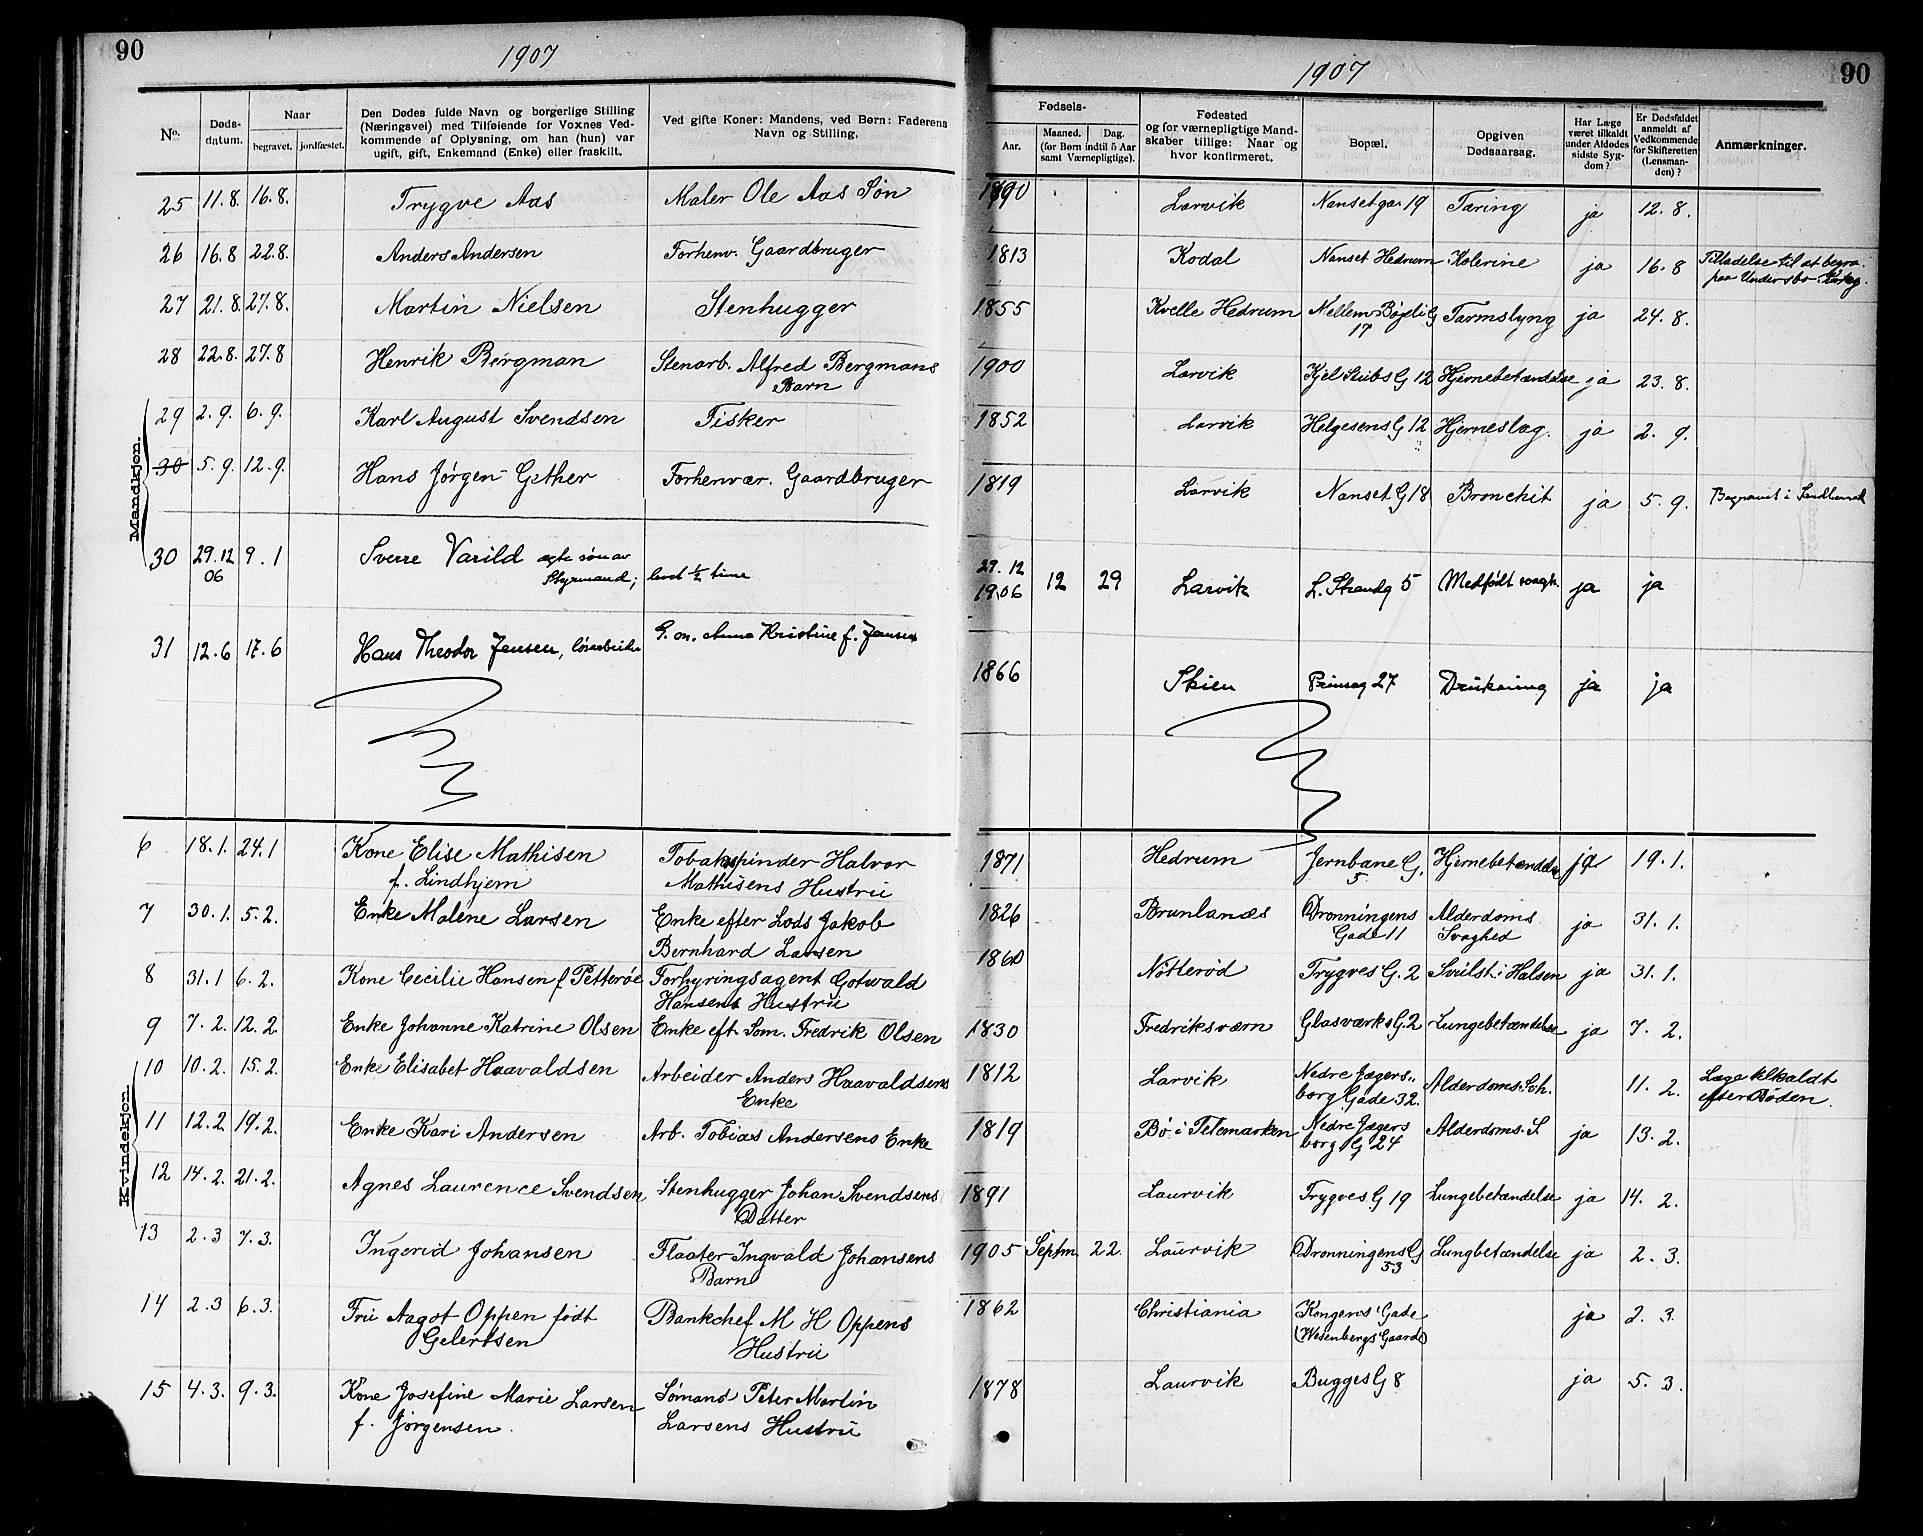 90
1907
No.
Døds-
datum.
Naar
begravet.
jordfæstet.
Den Dødes fulde Navn og borgerlige Stilling
(Næringsvei) med Tilføiende for Voxnes Ved-
kommende af Oplysning, om han (hun) var
ugift, gift, Enkemand (Enke) eller fraskilt.
Ved gifte Koner: Mandens, ved Børn: Faderens
Navn og Stilling.
25 11.8. 16.8. Trygve Aas Maler Ole Aas Søn
26 16.8 22.8. Anders Andersen Forhenv. Gaardbruger
27 21.8. 27.8. Martin Nielsen Stenhugger
28 22.8. 27.8 Henrik Bergman Stenarb. Alfred Bergmans
Barn
Mandkjøn.
29 2.9. 6.9. Karl August Svendsen Fisker
30 5.9. 12.9. Hans Jørgen Gether Forhenvær. Gaardbruger
30 29.12 9.1 Sverre Varild ægte søn av
06 Styrmand; levet ½ time
31 12.6 17.6 Hans Theodor Jensen, løsarbeider G. m. Anna Kristine f. Jansen
6 18.1. 24.1 Kone Elise Mathisen Tobakspinder Halvor
f. Lindhjem Mathisens Hustru
7 30.1. 5.2. Enke Malene Larsen Enke efter Lods Jakob
Bernhard Larsen
8 31.1 6.2. Kone Cecilie Hansen f. Petterøe Forhyringsagent Gotwald
Hansens Hustru
9 7.2. 12.2. Enke Johanne Katrine Olsen Enke eft. Søm. Fredrik Olsen
Kvindekjøn
10 10.2. 15.2. Enke Elisabet Haavaldsen Arbeider Anders Haavaldsens
Enke
11 12.2. 19.2. Enke Kari Andersen Arb. Tobias Andersens Enke
12 14.2. 21.2. Agnes Laurence Svendsen Stenhugger Johan Svendsens
Datter
13 2.3 7.3. Ingerid Johansen Flaater Ingvald Johansens
Barn
14 2.3 6.3. Fru Aagot Oppen født Bankchef M H Oppens
Gelertsen Hustru
15 4.3. 9.3. Kone Josefine Marie Larsen Sømand Peter Martin
f. Jørgensen. Larsens Hustru
1907
90
Fødsels-
Aar.
Maaned. Dag.
(for Børn indtil 5 Aar
samt Værnepligtige).
Fødested
og for værnepligtige Mand-
skaber tillige: Naar og
hvor konfirmeret.
Bopæl.
Opgiven
Dødsaarsag.
Har Læge
været tilkaldt
under Afdødes
sidste Syg-
dom?
Er Dødsfaldet
anmeldt af
Vedkommende
for Skifteretten
(Lensman-
den)?
Anmærkninger.
1890 Larvik Nansetga 19 Tæring ja 12.8.
1813 Kodal Nanset Hedrum Kolerine ja 16.8 Tilladelse til at begra.
paa Undersbo Kirkeg.
1855 Kvelle Hedrum Mellem Bøjeli G Tarmslyng ja 24.8.
17
1900 Larvik Kjel Stubs G 12 Hjernebetændelse ja 23.8.
1852 Larvik Helgesens G 12 Hjerneslag. ja 2.9.
1819 Larvik Nanset G 18 Bronchit ja 5.9. Begravet i Sandherred
29.12
1906 12 29 Larvik L. Strandg 5 Medfødt svagh. ja ja
1866 Skien Prinseg 27 Drukning ja ja
1871 Hedrum Jernbane G. Hjernebetændelse ja 19.1.
5.
1826 Brunlanæs Dronningens Alderdoms ja 31.1.
Gade 11 Svaghed
1860 Nøtterød Trygves G. 2 Svulst i Halsen ja 31.1.
1830 Fredriksværn Glasværks G. 2 Lungebetændelse ja 7.2.
1812 Larvik Nedre Jægers- Alderdoms. Svh. 11.2. Læge tilkaldt
borg Gade 32. efter Døden.
1819 Bø i Telemarken Nedre Jægers Alderdoms. S ja 13.2.
borg G 24
1891 Laurvik Trygves G 19 Lungebetændelse ja 14.2.
1905 Septm. 22. Laurvik Dronningens G Lungbetændelse ja 2.3.
53
1862 Christiania Kongens Gade ja 2.3.
(Wesenbergs Gaard)
1878 Laurvik Bugges G 8 ja 5.3.